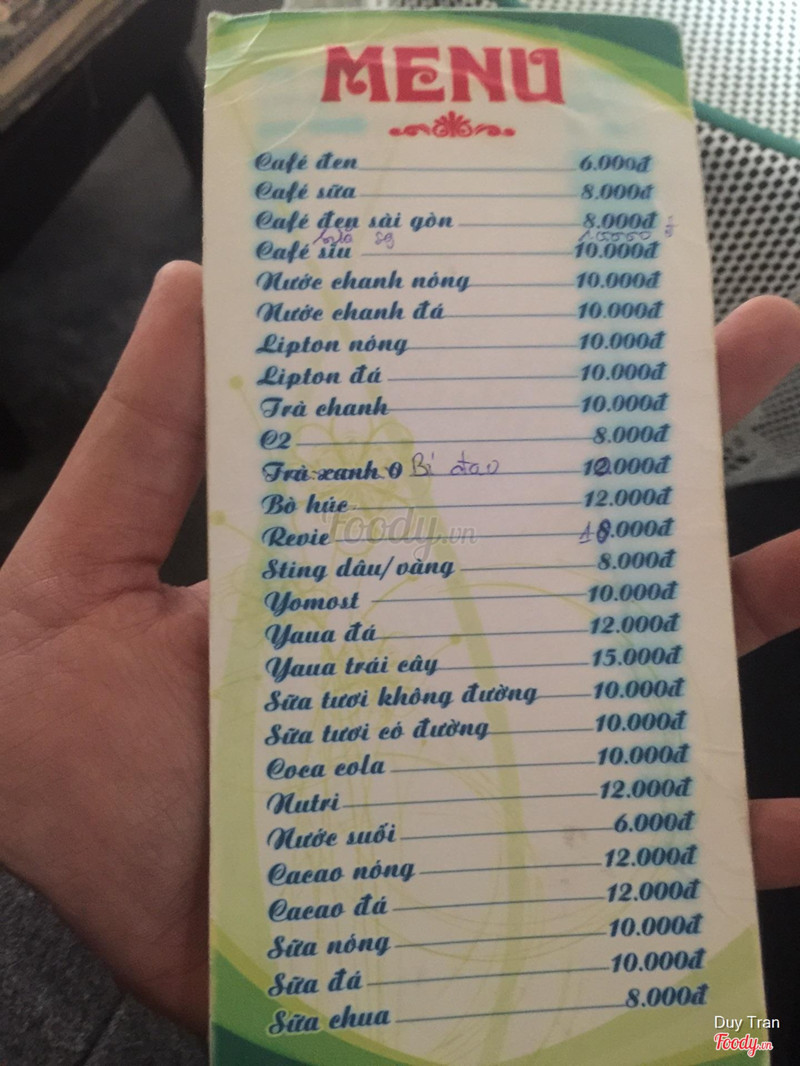 MENU
Café đen 6.000đ
Café sữa 8.000đ
Café đen sài gòn 8.000đ
sữa sg 10000 đ
Café sỉu 10.000đ
Nước chanh nóng 10.000đ
Nước chanh đá 10.000đ
Lipton nóng 10.000đ
Lipton đá 10.000đ
Trà chanh 10.000đ
C2 8.000đ
Trà xanh 0 Bí đao 10.000đ
Bò húc 12.000đ
Revie 10.000đ
Sting dâu/vàng 8.000đ
Yomost 10.000đ
Yaua đá 12.000đ
Yaua trái cây 15.000đ
Sữa tươi không đường 10.000đ
Sữa tươi có đường 10.000đ
Coca cola 10.000đ
Nutri 12.000đ
Nước suối 6.000đ
Cacao nóng 12.000đ
Cacao đá 12.000đ
Sữa nóng 10.000đ
Sữa đá 10.000đ
Sữa chua 8.000đ
Foody.vn
Duy Tran
Foody.vn